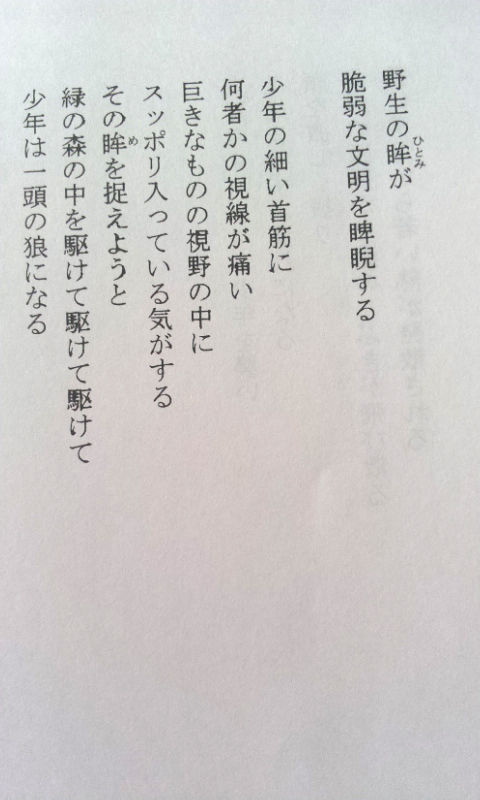 野生の眸が
脆弱な文明を睥睨する
少年の細い首筋に
何者かの視線が痛い
巨きなものの視野の中に
スッポリ入っている気がする
その眸を捉えようと
緑の森の中を駆けて駆けて駆けて
少年は一頭の狼になる